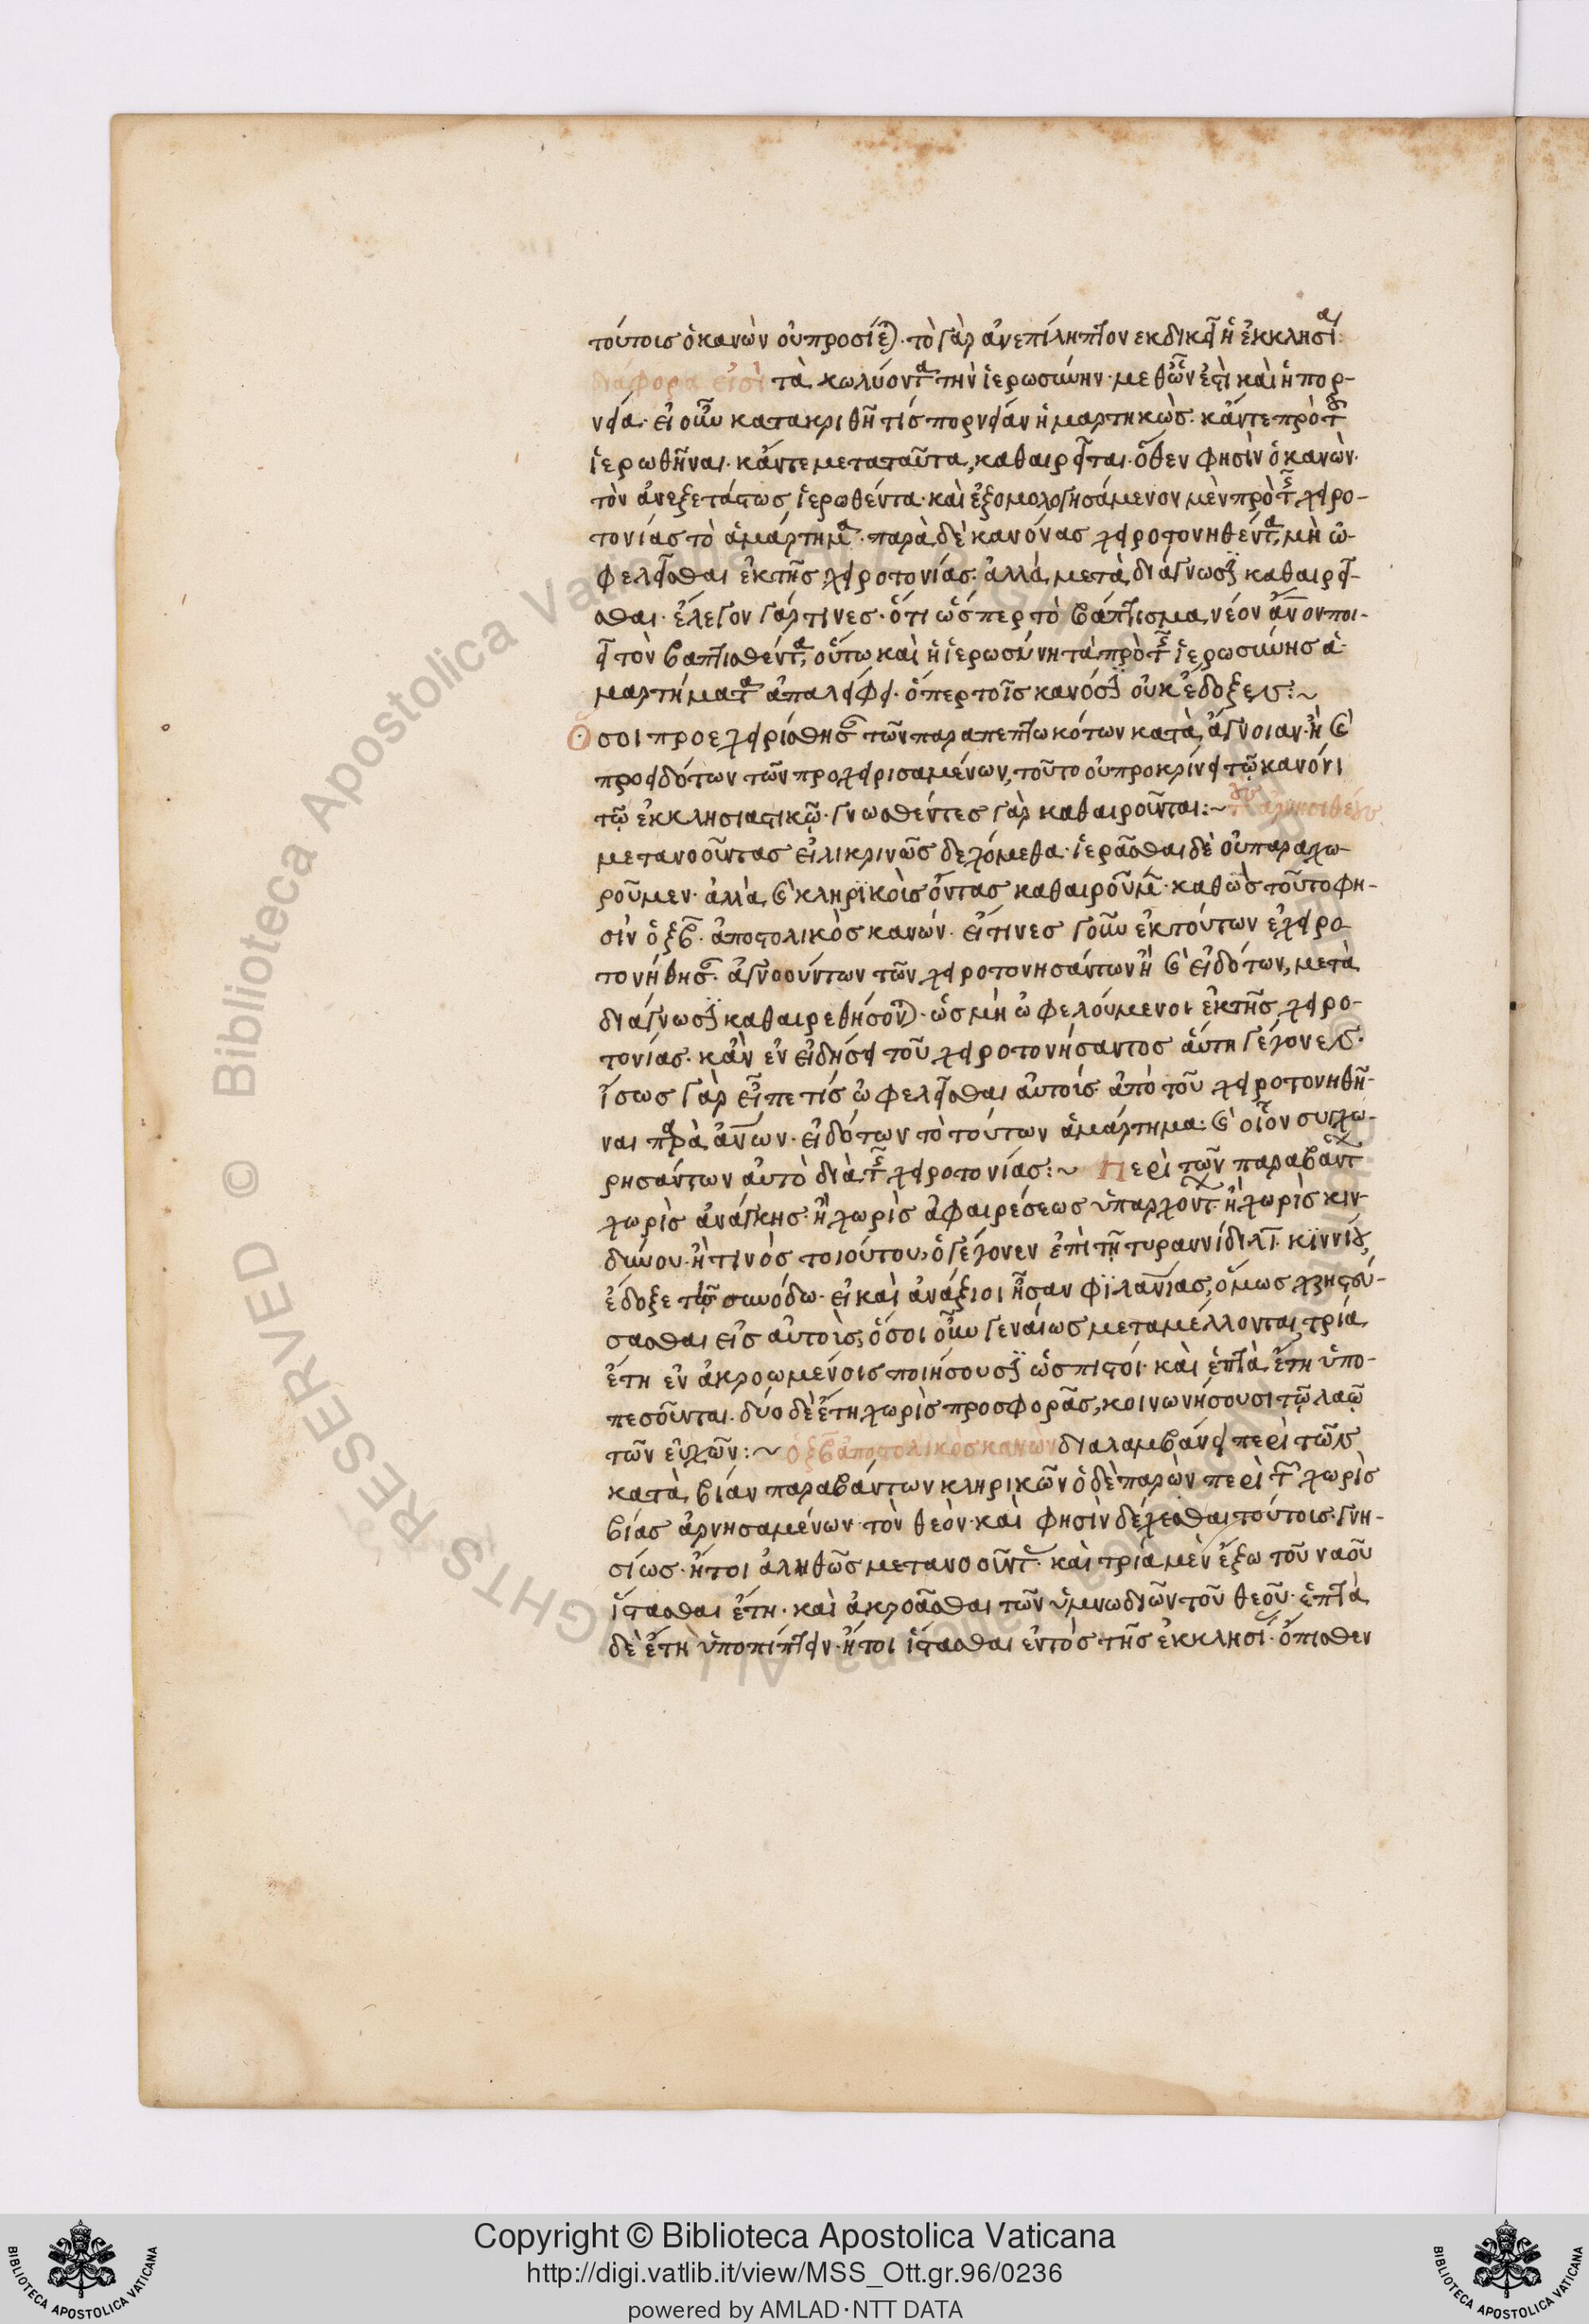 τούτοις ὁ κανὼν οὐ προσίεται. τὸ γὰρ ἀνεπίληπτον εκδικεῖ ἡ ἐκκλησία:
διάφορα εἰσὶ τὰ κωλύοντα τὴν ἱερωσύνην. μεθ ὧν ἐστὶ καὶ ἡ πορ-
νεία. εἰ οὖν κατακριθῆ τίς πορνείαν ἡμαρτηκὼς. κἄντε πρὸ τοῦ
ἱερωθῆναι. κἄντε μετα ταῦτα, καθαιρεῖται. ὅθεν φησὶν ὁ κανὼν.
τὸν ἀνεξετάστως ἱερωθέντα. καὶ ἐξομολογησάμενον μὲν πρὸ τῆς χειρο-
τονίας τὸ ἁμάρτημα. παρὰ δὲ κανόνας χειροτονηθέντα, μὴ ὠ-
φελεῖσθαι ἐκ τῆς χειροτονίας. ἀλλὰ μετὰ διάγνωσιν καθαιρεῖ-
σθαι. ἔλεγον γάρ τινες. ὅτι ὥσπερ τὸ βάπτισμα, νέον ἄνον ποι-
εῖ τὸν βαπτισθέντα, οὕτω καὶ ἡ ἱερωσύνη τὰ πρὸ τῆς ἱερωσύνης ἁ-
μαρτήματα ἀπαλείφει. ὅπερ τοῖς κανόσιν οὐκ ἔδοξεν:~
Ὅσοι προεχειρίσθησαν τῶν παραπεπτωκότων κατὰ ἄγνοιαν. ἢ καὶ
προειδότων τῶν προχειρισαμένων, τοῦτο οὐ προκρίνει τῷ κανόνι
τῷ ἐκκλησιαστικῷ. γνωσθέντες γὰρ καθαιροῦνται:~ τοὺς ἀρνησιθέους
μετανοοῦντας εἰλικρινῶς δεχόμεθα. ἱερᾶσθαι δὲ οὐ παραχω
ροῦμεν. ἀλλὰ καὶ κληρϊκοὶς ὄντας καθαιροῦμεν. καθὼς τοῦτο φη-
σὶν ὁ ξβ. ἀποστολικὸς κανών. εἴ τινες γοῦν ἐκ τούτων ἐχειρο
τονήθησαν. ἀγνοούντων τῶν χειροτονησάντων ἢ καὶ εἰδότων, μετὰ
διάγνωσιν καθαιρεθήσονται. ὡς μὴ ὠφελούμενοι ἐκ τῆς χειρο-
τονίας. κἂν εν εἰδήσει τοῦ χειροτονήσαντος αὕτη γέγονεν.
ἴσως γὰρ εἶπε τίς ὠφελεῖσθαι αὐτοὶς ἀπὸ τοῦ χειροτονηθῆ-
ναι παρὰ ἀνων. εἰδότων τὸ τούτων ἁμάρτημα: καὶ οἷον συγχω-
ρησάντων αὐτὸ διὰ τῆς χειροτονίας:~ Περὶ τῶν παραβάντων
χωρὶς ἀνάγκης. ἢ χωρὶς ἀφαιρέσεως ὑπαρχόντων. ἢ χωρὶς κιν-
δύνου. ἢ τινὸς τοιούτου, ὃ γέγονεν ἐπὶ τῆ τυραννίδι λι. κϊννίου,
ἔδοξε τῇ συνόδω. εἰ καὶ ἀνάξιοι ἦσαν φϊλανίας, ὅμως χρηστεύ-
σασθαι εἰς αὐτοὶς, ὅσοι οὖν γεναίως μεταμέλλονται, τρία
ἔτη εν ἀκροωμένοις ποιήσουσιν ὡς πιστοὶ. καὶ ἑπτὰ ἔτη ὑπο-
πεσοῦνται. δύο δὲ ἔτη χωρὶς προσφορᾶς, κοινωνήσουσι τῷ λαῷ
τῶν εὐχῶν:~ ὁ ξβ ἀποστολικὸς κανὼν διαλαμβάνει περὶ τῶν
κατὰ βίαν παραβάντων κληρικῶν ὁ δὲ παρὼν περὶ τῶν χωρὶς
βίας ἀρνησαμένων τὸν θεὸν. καὶ φησὶν δέχεσθαι τούτοις. γνη-
σίως. ἤτοι ἀληθῶς μετανοοῦντας. καὶ τρία μὲν ἔξω τοῦ ναοῦ
ἵστασθαι ἔτη. καὶ ἀκροᾶσθαι τῶν ὑμνωδιῶν τοῦ θεοῦ. ἑπτὰ
δὲ ἔτη ὑποπίπτειν. ἤτοι ἵστασθαι ἐντὸς τῆς ἐκκλησί. ὄπισθεν
© Biblioteca Apostolica Vaticana ALL RIGHTS RESERVED
Copyright © Biblioteca Apostolica Vaticana
http://digi.vatlib.it/view/MSS_Ott.gr.96/0236
powered by AMLAD·NTT DATA
BIBLIOTECA APOSTOLICA VATICANA
BIBLIOTECA APOSTOLICA VATICANA